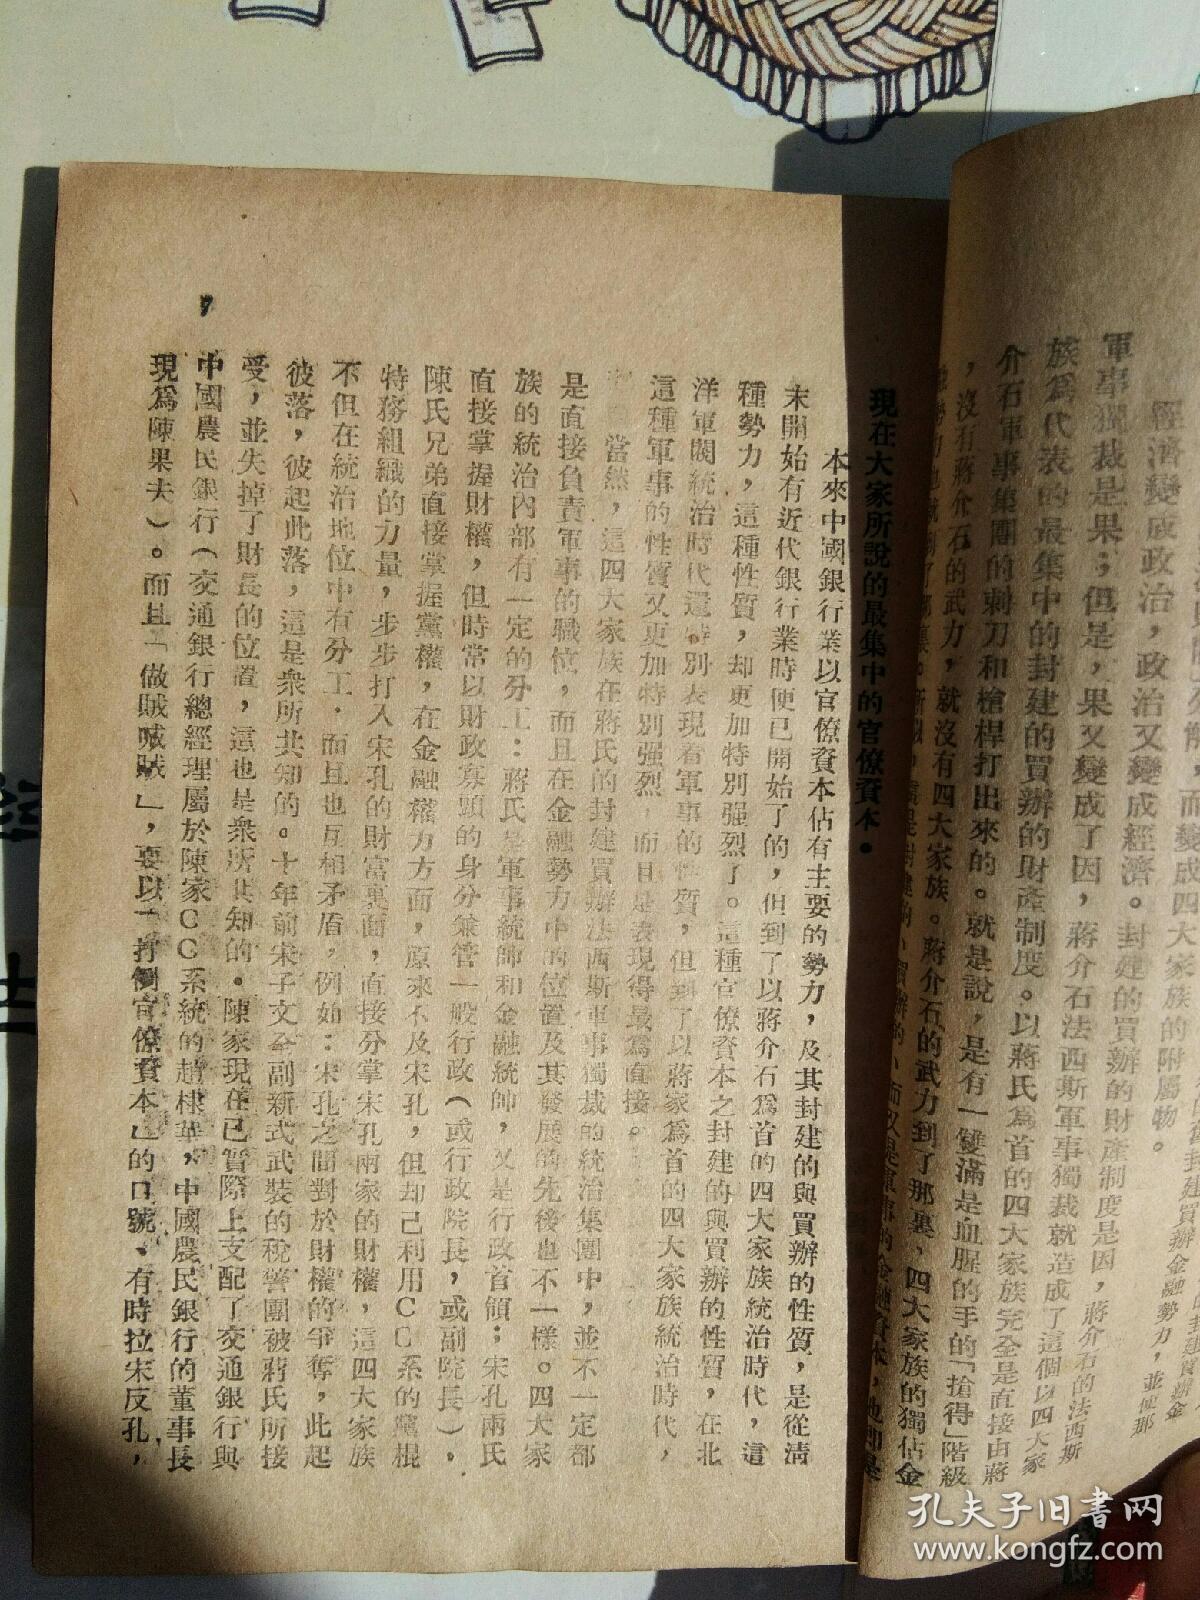 經濟變成政治，政治又變成經濟。封建的買辦的財產制度是因，蔣介石的法西斯
軍事獨裁是果；但是，果又變成了因，蔣介石法西斯軍事獨裁就造成了這個以四大家
族爲代表的最集中的封建的買辦的財產制度。以蔣氏爲首的四大家族完全是直接由蔣
介石軍事集團的刺刀和槍桿打出來的。就是說，是有一雙滿是血腥的手的「搶得」階級
，沒有蔣介石的武力，就沒有四大家族。蔣介石的武力到了那裏，四大家族的獨佔金
現在大家所說的最集中的官僚資本。
本來中國銀行業以官僚資本佔有主要的勢力，及其封建的與買辦的性質，是從淸
末開始有近代銀行業時便已開始了的，但到了以蔣介石爲首的四大家族統治時代，這
種勢力，這種性質，却更加特別强烈了。這種官僚資本之封建的與買辦的性質，在北
洋軍閥統治時代還特別表現着軍事的性質，但到了以蔣家爲首的四大家族統治時代，
這種軍事的性質又更加特別强烈，而且是表現得最爲直接。
當然，這四大家族在蔣氏的封建買辦法西斯軍事獨裁的統治集團中，並不一定都
是直接負責軍事的職位，而且在金融勢力中的位置及其發展的先後也不一樣。四大家
族的統治內部有一定的分工：蔣氏是軍事統帥和金融統帥，又是行政首領；宋孔兩氏
直接掌握財權，但時常以財政寡頭的身分兼管一般行政（或行政院長，或副院長），
陳氏兄弟直接掌握黨權，在金融權力方面，原來不及宋孔，但却已利用ＣＣ系的黨棍
特務組織的力量，步步打入宋孔的財富裏面，直接分掌宋孔兩家的財權，這四大家族
不但在統治地位中有分工，而且也互相矛盾，例如：宋孔之間對於財權的爭奪，此起
彼落，彼起此落，這是衆所共知的。十年前宋子文全副新式武裝的稅警團被蔣氏所接
受，並失掉了財長的位置，這也是衆所共知的。陳家現在已實際上支配了交通銀行與
中國農民銀行（交通銀行總經理屬於陳家ＣＣ系統的趙棣華，中國農民銀行的董事長
現爲陳果夫）。而且「做賊喊賊」，要以「打倒官僚資本」的口號，有時拉宋反孔，
7
孔夫子旧书网
www.kongfz.com